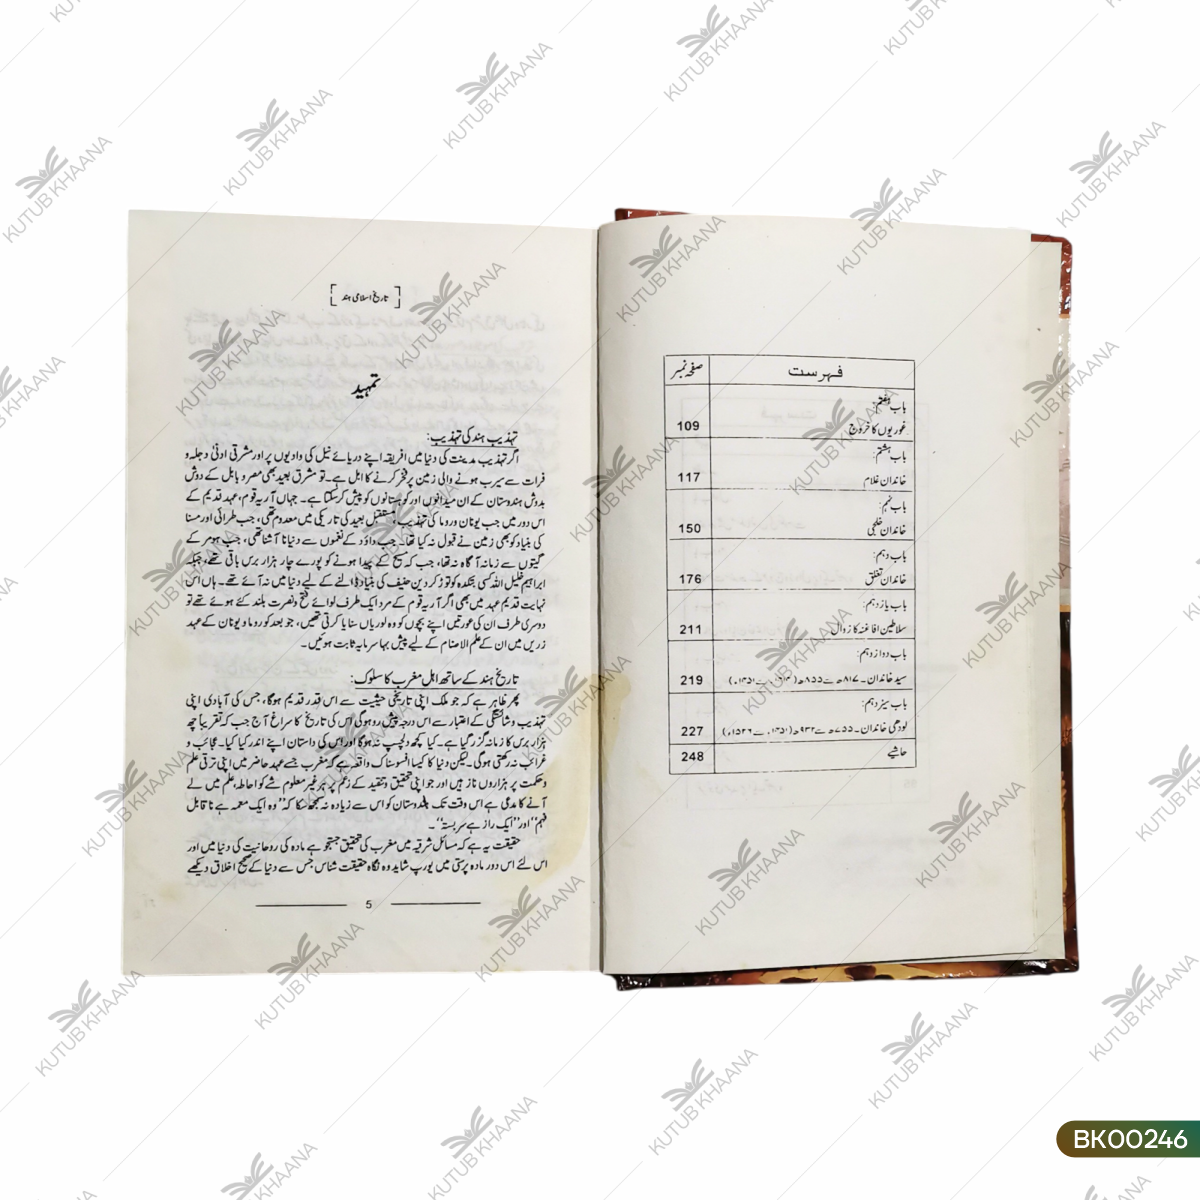 فہرست
صفحہ نمبر
باب ہفتم:
غوریوں کا خروج
109
باب ہشتم:
خاندان غلام
117
باب نہم:
خاندان خلجی
150
باب دہم:
خاندان تغلق
176
باب یازدہم:
سلاطین افاغنہ کا زوال
211
باب دوازدہم:
سید خاندان۔ ۸۱۷ھ سے ۸۵۵ھ (۱۴۱۴ء سے ۱۴۵۱ء)
219
باب سیزدہم:
لودھی خاندان۔ ۸۵۵ھ سے ۹۳۲ھ (۱۴۵۱ء سے ۱۵۲۶ء)
227
حاشیے
248
[تاریخ اسلامی ہند]
تمہید
تہذیب ہند کی تہذیب:
اگر تہذیب مدینت کی دنیا میں افریقہ اپنے دریائے نیل کی وادیوں پر اور مشرقی ادنیٰ دجلہ و
فرات سے سیرب ہونے والی زمین پر فخر کرنے کا اہل ہے۔ تو مشرق بعید بھی مصر و بابل کے دوش
بدوش ہندوستان کے ان میدانوں اور کوہستانوں کو پیش کرسکتا ہے۔ جہاں آریہ قوام، عہد قدیم کے
اس دور میں جب یونان و روما کی تہذیب، مستقبل بعید کی تاریکی میں معدوم تھی، جب طرائی اور مسنا
کی بنیاد کو بھی زمین نے قبول نہ کیا تھا۔ جب داؤد کے نغموں سے دنیا نا آشنا تھی، جب ہومر کے
گیتوں سے زمانہ آگاہ نہ تھا، جب کہ مسیح کے پیدا ہونے کو پورے چار ہزار برس باقی تھے، جبکہ
ابراہیم خلیل اللہ کسی بتکدہ کو توڑ کر دین حنیف کی بنیاد ڈالنے کے لیے دنیا میں نہ آئے تھے۔ ہاں اس
نہایت قدیم عہد میں بھی اگر آریہ قوم کے مرد ایک طرف لوائے فتح و نصرت بلند کئے ہوئے تھے تو
دوسری طرف ان کی عورتیں اپنے بچوں کو وہ لوریاں سنایا کرتی تھیں، جو بعد کو روما و یونان کے عہد
زریں میں ان کے علم الاصنام کے لیے پیش بہا سرمایہ ثابت ہوئیں۔
تاریخ ہند کے ساتھ اہل مغرب کا سلوک:
پھر ظاہر ہے کہ جو ملک اپنی تاریخی حیثیت سے اس قدر قدیم ہوگا، جس کی آبادی اپنی
تہذیب و شائستگی کے اعتبار سے اس درجہ پیش رو ہوگی اس کی تاریخ کا سراغ آج جب کہ تقریباً چھ
ہزار برس کا زمانہ گزر گیا ہے۔ کیا کچھ دلچسپ نہ ہوگا اور اس کی داستان اپنے اندر کیا کیا۔ عجائب و
غرائب نہ رکھتی ہوگی۔ لیکن دنیا کا کیسا افسوسناک واقعہ ہے کہ مغرب جسے عہد حاضر میں اپنی ترقی علم
و حکمت پر ہزاروں ناز ہیں اور جو اپنی تحقیق و تنقید کے زعم پر ہر غیر معلوم شے کو احاطہ علم میں لے
آنے کا مدعی ہے اس وقت تک ہندوستان کو اس سے زیادہ نہ سمجھ سکا کہ "وہ ایک معمہ ہے ناقابل
فہم" اور "ایک راز ہے سربستہ"۔
حقیقت یہ ہے کہ مسائل شرقیہ میں مغرب کی تحقیق جستجو ہے مادہ کی روحانیت کی دنیا میں اور
اس لئے اس دور مادہ پرستی میں یورپ شاید وہ نگاہ حقیقت شناس جس سے دنیا کے صحیح اخلاق دیکھے
5
BK00246
KUTUB KHAANA